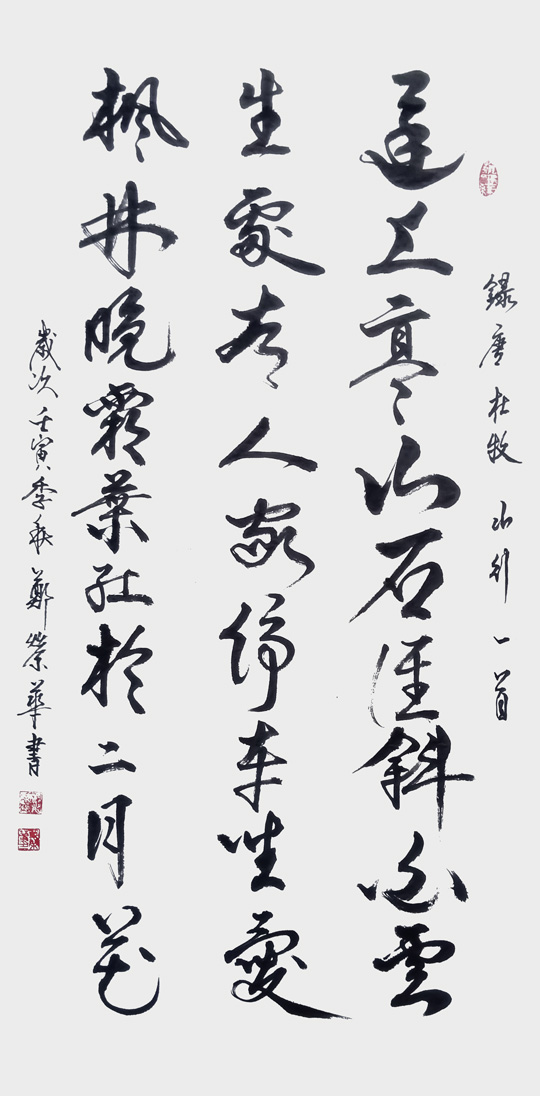 錄唐杜牧山行一首
遠上寒山石徑斜白雲
生處有人家停車坐愛
楓林晚霜葉紅於二月花
歲次壬寅季秋鄭榮華書